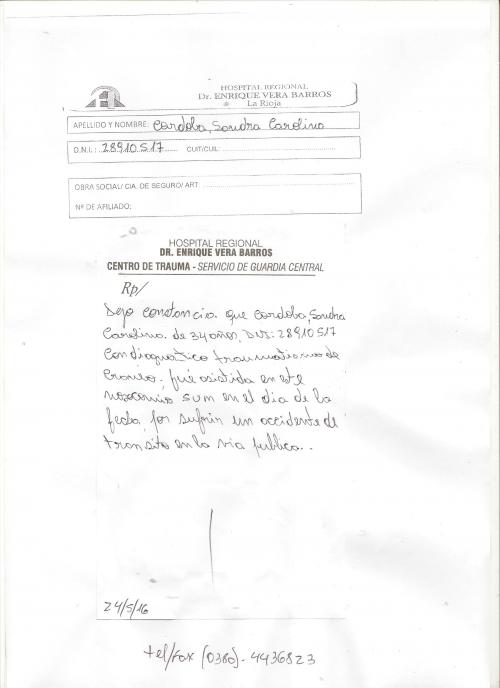 HOSPITAL REGIONAL
Dr. ENRIQUE VERA BARROS
La Rioja
APELLIDO Y NOMBRE: Cordoba, Sandra Carolina
D.N.I.: 28910517 CUIT/CUIL:
OBRA SOCIAL/ CIA. DE SEGURO/ ART:
Nº DE AFILIADO:
HOSPITAL REGIONAL
DR. ENRIQUE VERA BARROS
CENTRO DE TRAUMA - SERVICIO DE GUARDIA CENTRAL
Rp/
Dejo constancia que Cordoba, Sandra
Carolina de 34 años, DNI: 28910517
con diagnostico traumatismo de
craneo, fué asistida en este
nosocomio en el dia de la
fecha, por sufrir un accidente de
transito en la via publica..
24/5/16
tel/fax (0380)- 4436823